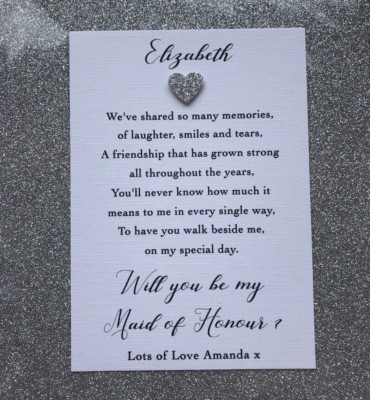 Elizabeth
We've shared so many memories,
of laughter, smiles and tears,
A friendship that has grown strong
all throughout the years,
You'll never know how much it
means to me in every single way,
To have you walk beside me,
on my special day.
Will you be my
Maid of Honour ?
Lots of Love Amanda x